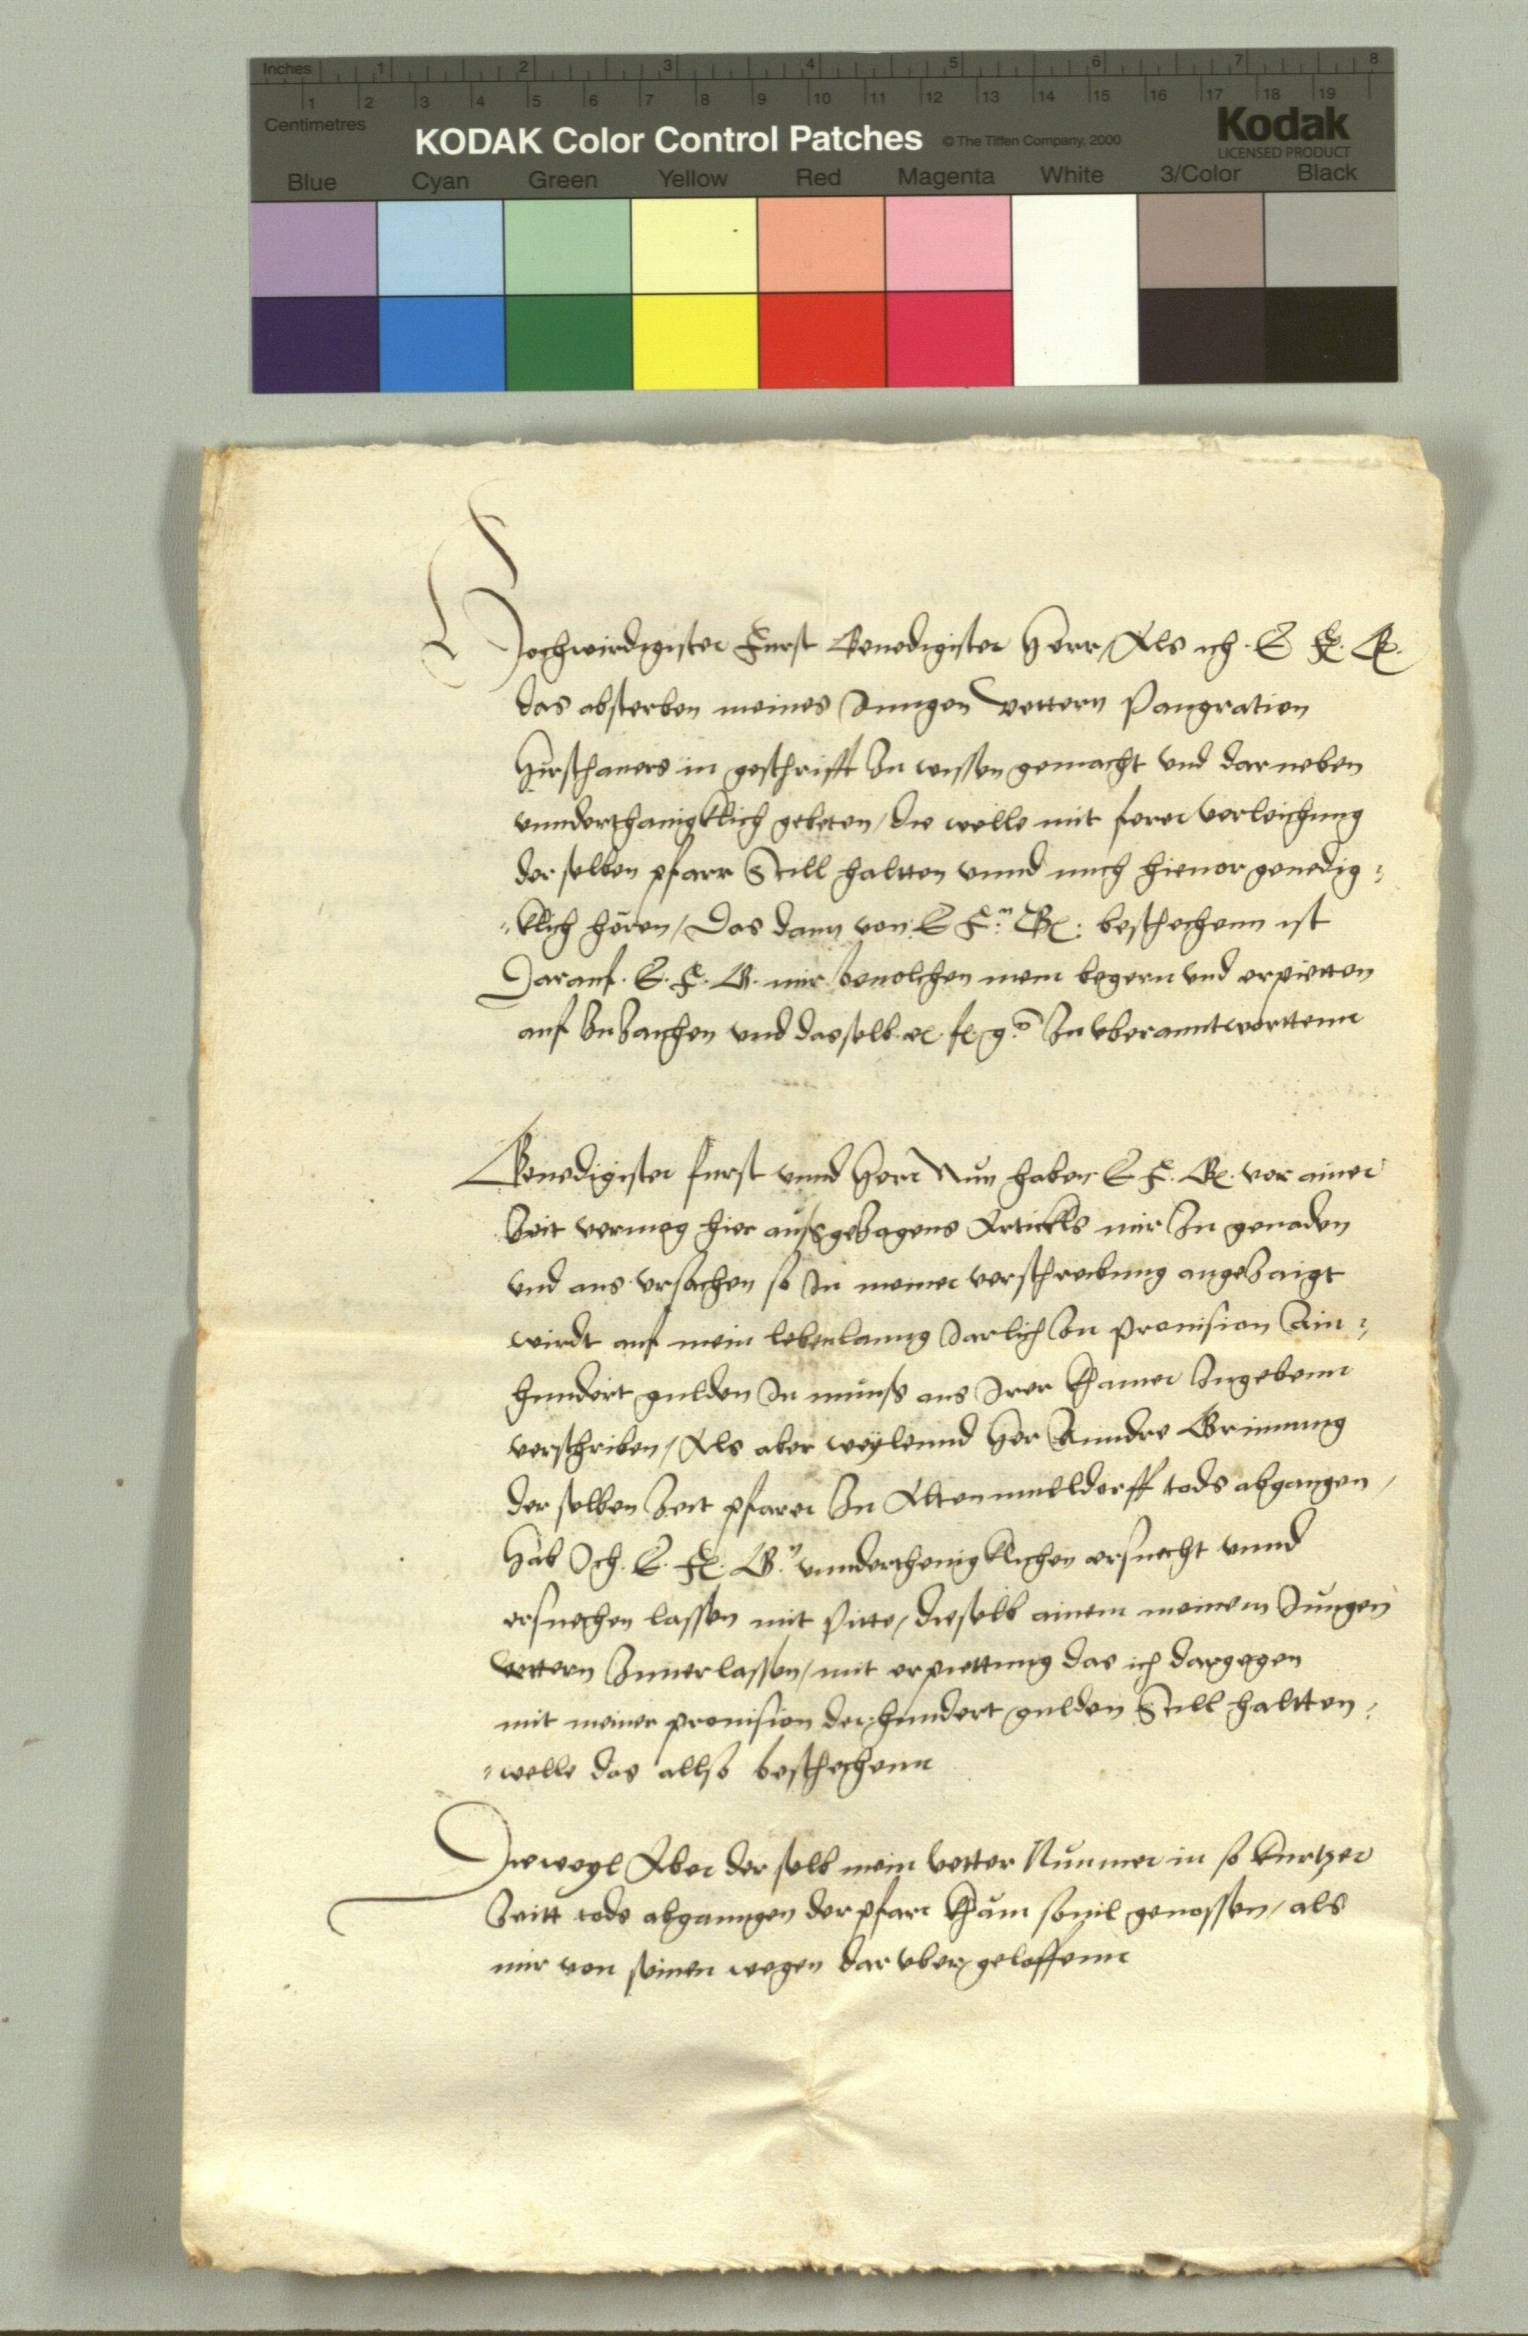 Inches 1 2 3 4 5 6 7 8
1 2 3 4 5 6 7 8 9 10 11 12 13 14 15 16 17 18 19
Centimetres
KODAK Color Control Patches © The Tiffen Company, 2000 Kodak
LICENSED PRODUCT
Blue Cyan Green Yellow Red Magenta White 3/Color Black
Hochwirdigister Furst Genedigister Herr / Als ich E F. G.
das absterben meines Jungen vettern Pangratien
Hirschauers in geschrifft zu wissen gemacht vnd darneben
vnnderthanigklich gebeten / die welle mit ferer verleichung
der selben pfarr Still haltten vnnd mich hieuor genedig
klich hören / Das dann von E F. G. beschechenn ist
Darauf. E. F. G. mir beuolchen mein begern vnd erpietten
auf zuzaichen vnd dasselb e. f. g. zu vberanntwurttenn
Genedigister furst vnnd Herr Nun haben E F. G. vor ainer
Zeit vermog hier aufsgezogens Artickls mir zu genaden
vnd aus vrsachen so in meiner verschreibung angezaigt
wirdt auf mein lebenlanng Jarlich zu prouision Ain
hundert gulden in munss aus Irer Chamer zugebenn
verschriben / Als aber weylennd Her Anndre Grinning
der selben Zeit pfarer zu Altenmulldorff tods abgangen /
Hab Ich. E. F. G. vnnderthenigklichen ersuecht vnnd
ersuechen lassen mit Pitte / dieselb ainem meinem Jungen
vettern zuuerlassen / mit erpiettung das ich dargegen
mit meiner prouision der hundert gulden Still haltten
welle das allso beschechenn
Dieweyl Aber der selb mein vetter Nunmer in so kurtzer
Zeitt tods abganngen der pfarr Chaum souil genossen / als
mir von seinen wegen daruber geloffenn